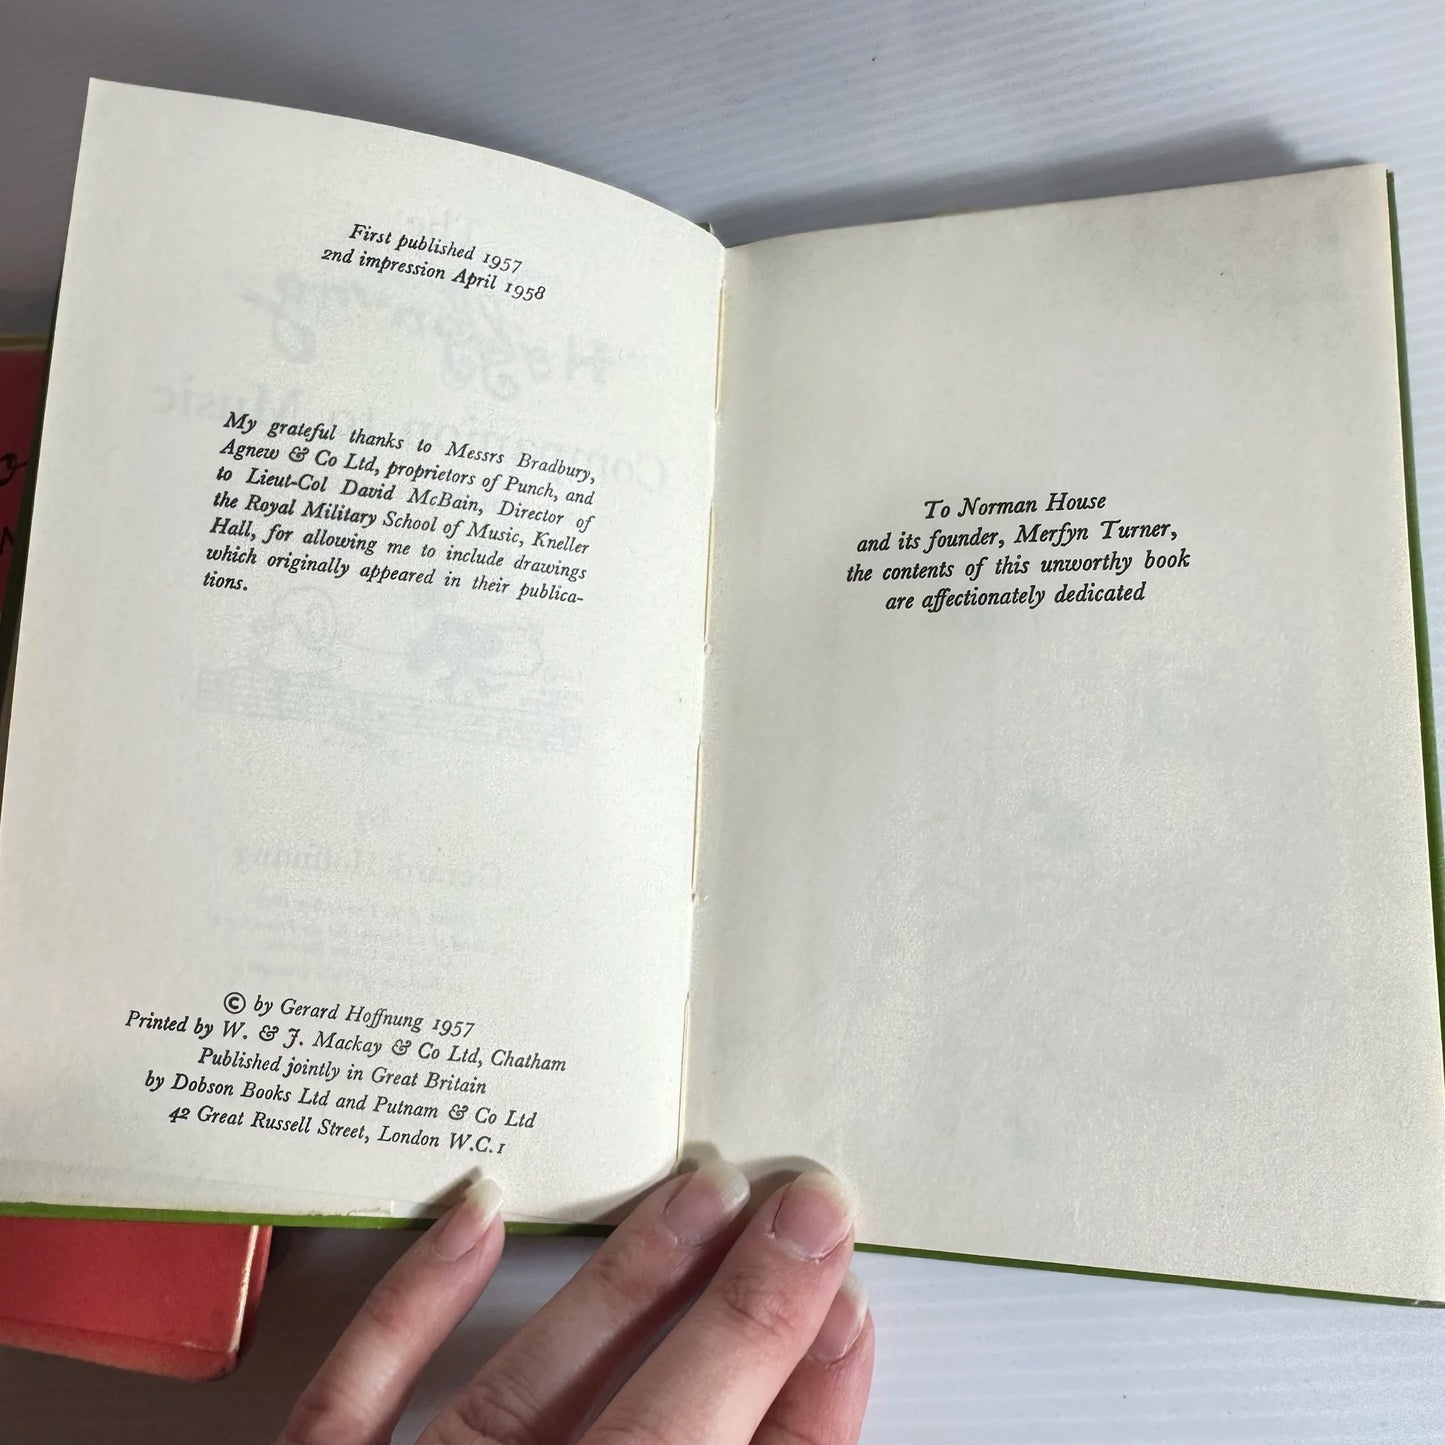 First published 1957
2nd impression April 1958
My grateful thanks to Messrs Bradbury,
Agnew & Co Ltd, proprietors of Punch, and
to Lieut-Col David McBain, Director of
the Royal Military School of Music, Kneller
Hall, for allowing me to include drawings
which originally appeared in their publica-
tions.
© by Gerard Hoffnung 1957
Printed by W. & J. Mackay & Co Ltd, Chatham
Published jointly in Great Britain
by Dobson Books Ltd and Putnam & Co Ltd
42 Great Russell Street, London W.C.1
To Norman House
and its founder, Merfyn Turner,
the contents of this unworthy book
are affectionately dedicated